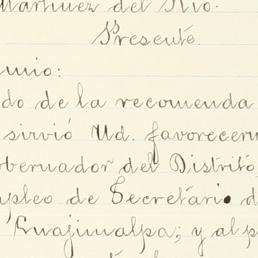 Martinez del Rio.
Presente.
mio:
do de la recomenda
sirvió Ud. favorecer
obernador del Distrito,
pleo de Secretario d
Cuajimalpa; y al p